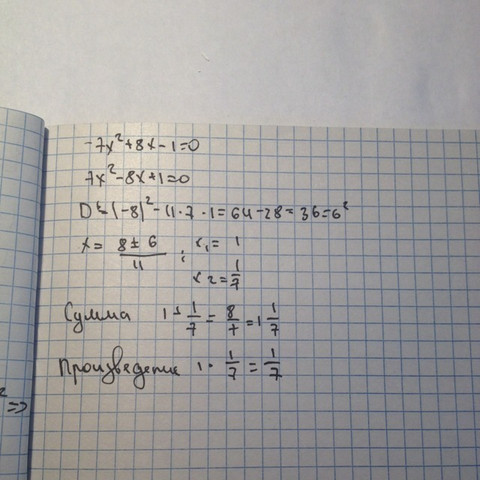 -7x²+8x-1=0
7x²-8x+1=0
D=(-8)²-4·7·1=64-28=36=6²
x= 8±6/14 ; x₁= 1
x₂=1/7
Сумма 1+1/7=8/7=1 1/7
Произведение 1·1/7=1/7
²=>